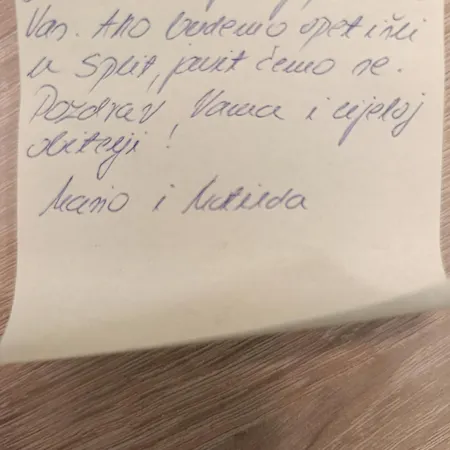 Vas. Ako budemo opet išli
u Split, javit ćemo se.
Pozdrav Vama i cijeloj
obitelji!
Mario i Matilda